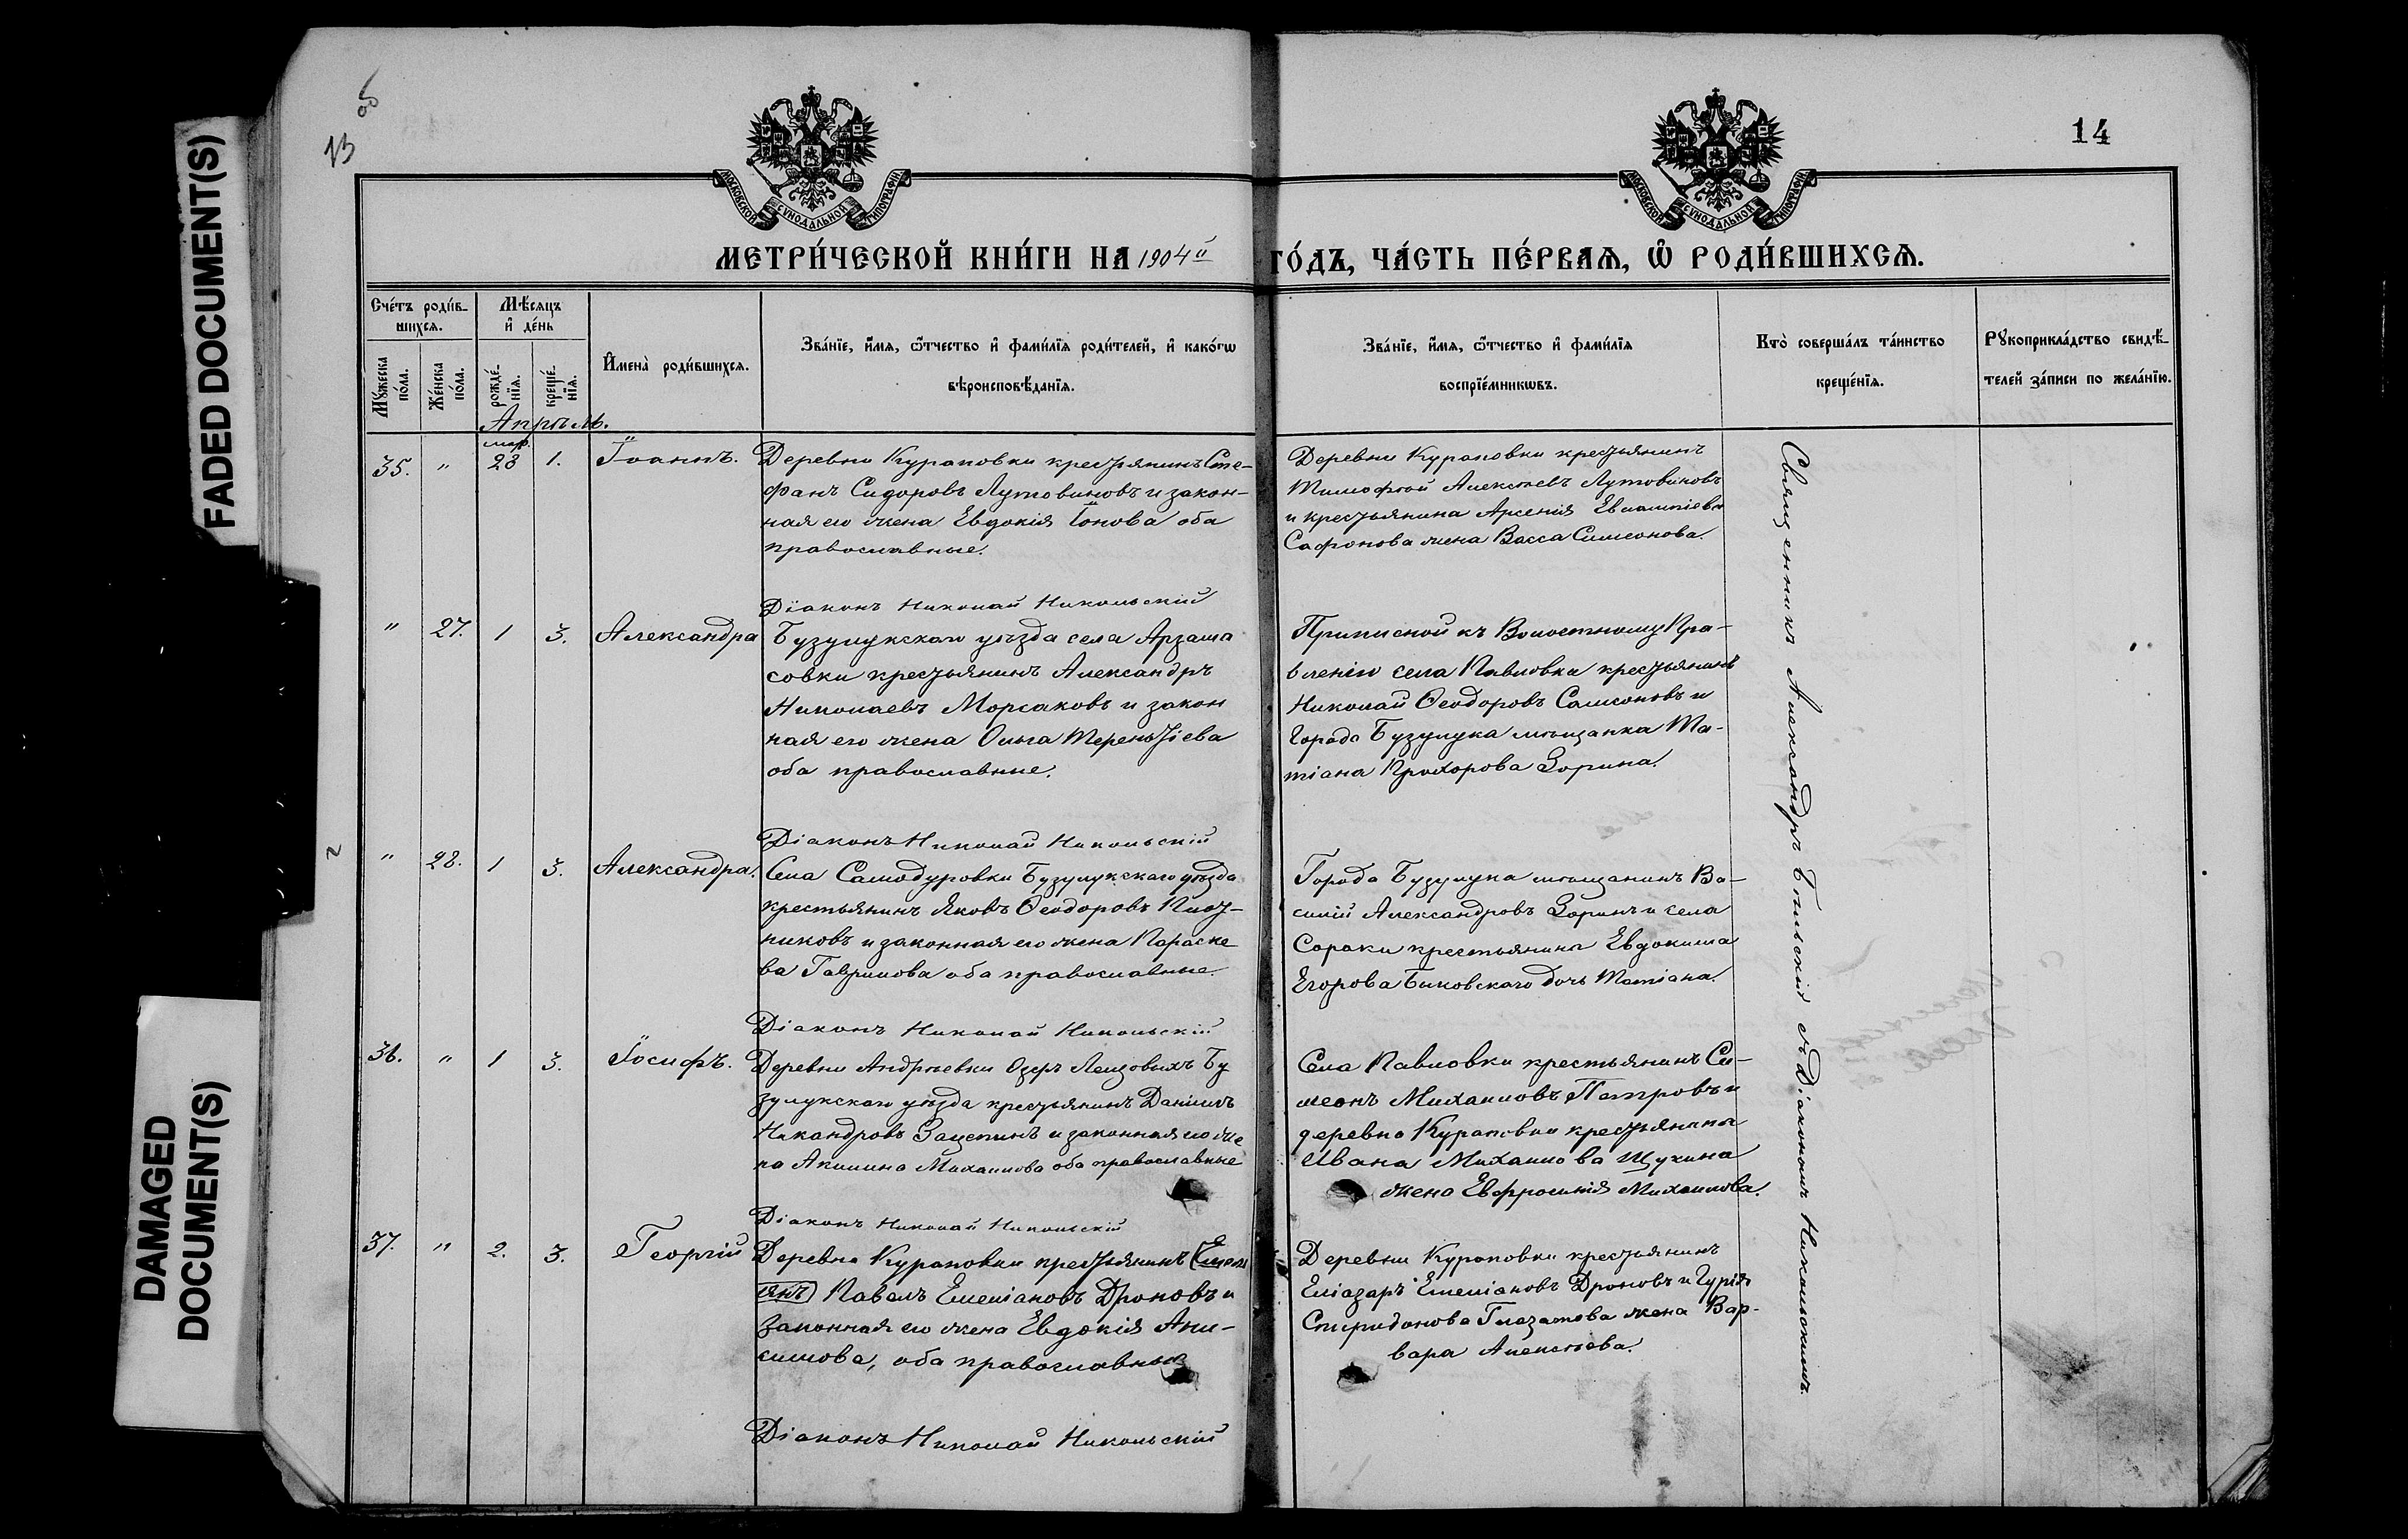 FADED DOCUMENT(S)
DAMAGED
DOCUMENT(S)
об
13
14
МОСКОВСКОЙ СѴНОДАЛЬНОЙ ТИПОГРАФІИ
МОСКОВСКОЙ СѴНОДАЛЬНОЙ ТИПОГРАФІИ
МЕТРИ́ЧЕСКОЙ КНИ́ГИ НА 1904й ГО́ДЪ, ЧА́СТЬ ПЕ́РВАѦ, Ѽ РОДИ́ВШИХСѦ.
Сче́тъ роди́в-
шихсѧ.
Мѣ́сѧцъ
и҆ де́нь
Мꙋ́жеска
по́ла.
Же́нска
по́ла.
рожде́-
нїѧ.
креще́-
нїѧ.
И҆мена̀ роди́вшихсѧ.
Зва́нїе, и҆́мѧ, ѻ҆́тчество и҆ фами́лїѧ роди́телей, и҆ како́гѡ
вѣроисповѣ́данїѧ.
Зва́нїе, и҆́мѧ, ѻ҆́тчество и҆ фами́лїѧ
воспрїе́мникѡвъ.
Кто̀ соверша́лъ та́инство
креще́нїѧ.
Рꙋкоприкла́дство свидѣ́-
телей за́писи по жела́нїю.
Апрѣль.
мар.
35. " 28 1. Іоаннъ.
Деревни Курановки крестьянинъ Сте-
фанъ Сидоровъ Лутовиновъ и закон-
ная его жена Евдокія Іонова оба
православные.
Деревни Курановки крестьянинъ
Тимофей Алексѣевъ Лутовиновъ
и крестьянина Арсенія Евлампіева
Сафонова жена Васса Симеонова.
Діаконъ Николай Никольскій
" 27. 1 3. Александра
Бузулукскаго уѣзда села Арзама
совки крестьянинъ Александръ
Николаевъ Морсаковъ и закон
ная его жена Ольга Терентіева
оба православные.
Приписной къ Волостному Пра-
вленію села Павловки крестьянинъ
Николай Ѳеодоровъ Самсоновъ и
Города Бузулука мѣщанка Та-
тіана Прохорова Зорина.
Діаконъ Николай Никольскій
" 28. 1 3. Александра.
Села Самодуровки Бузулукскаго уѣзда
крестьянинъ Яковъ Ѳеодоровъ
и законная его жена Параске
ва Гаврилова оба православные.
Города Бузулука мѣщанинъ Ва-
силій Александровъ Зоринъ и села
Сороки крестьянина Евдокима
Егорова Быковскаго дочь Татіана.
Діаконъ Николай Никольскій
36. " 1 3. Іосифъ.
Деревни Андреевки Озеръ Лещовыхъ Бу
зулукскаго уѣзда крестьянинъ Даніилъ
Никандровъ Зацепинъ и законная его же
на Акилина Михаилова оба православные
Села Павловки крестьянинъ Си-
меонъ Михаиловъ Петровъ и
деревни Курановки крестьянина
Ивана Михаилова Щукина
жена Евфросинія Михаилова.
Діаконъ Николай Никольскій
37. " 2. 3. Георгій
Деревни Курановки крестьянинъ (Емели
янъ) Павелъ Емеліановъ Дроновъ и
законная его жена Евдокія Они-
симова, оба православные
Деревни Курановки крестьянинъ
Еліазаръ Емеліановъ Дроновъ и Гурія
Спиридонова Глазатова жена Вар-
вара Алексѣева.
Діаконъ Николай Никольскій
Священникъ Александръ Бѣльскій съ Діакономъ Никольскимъ.